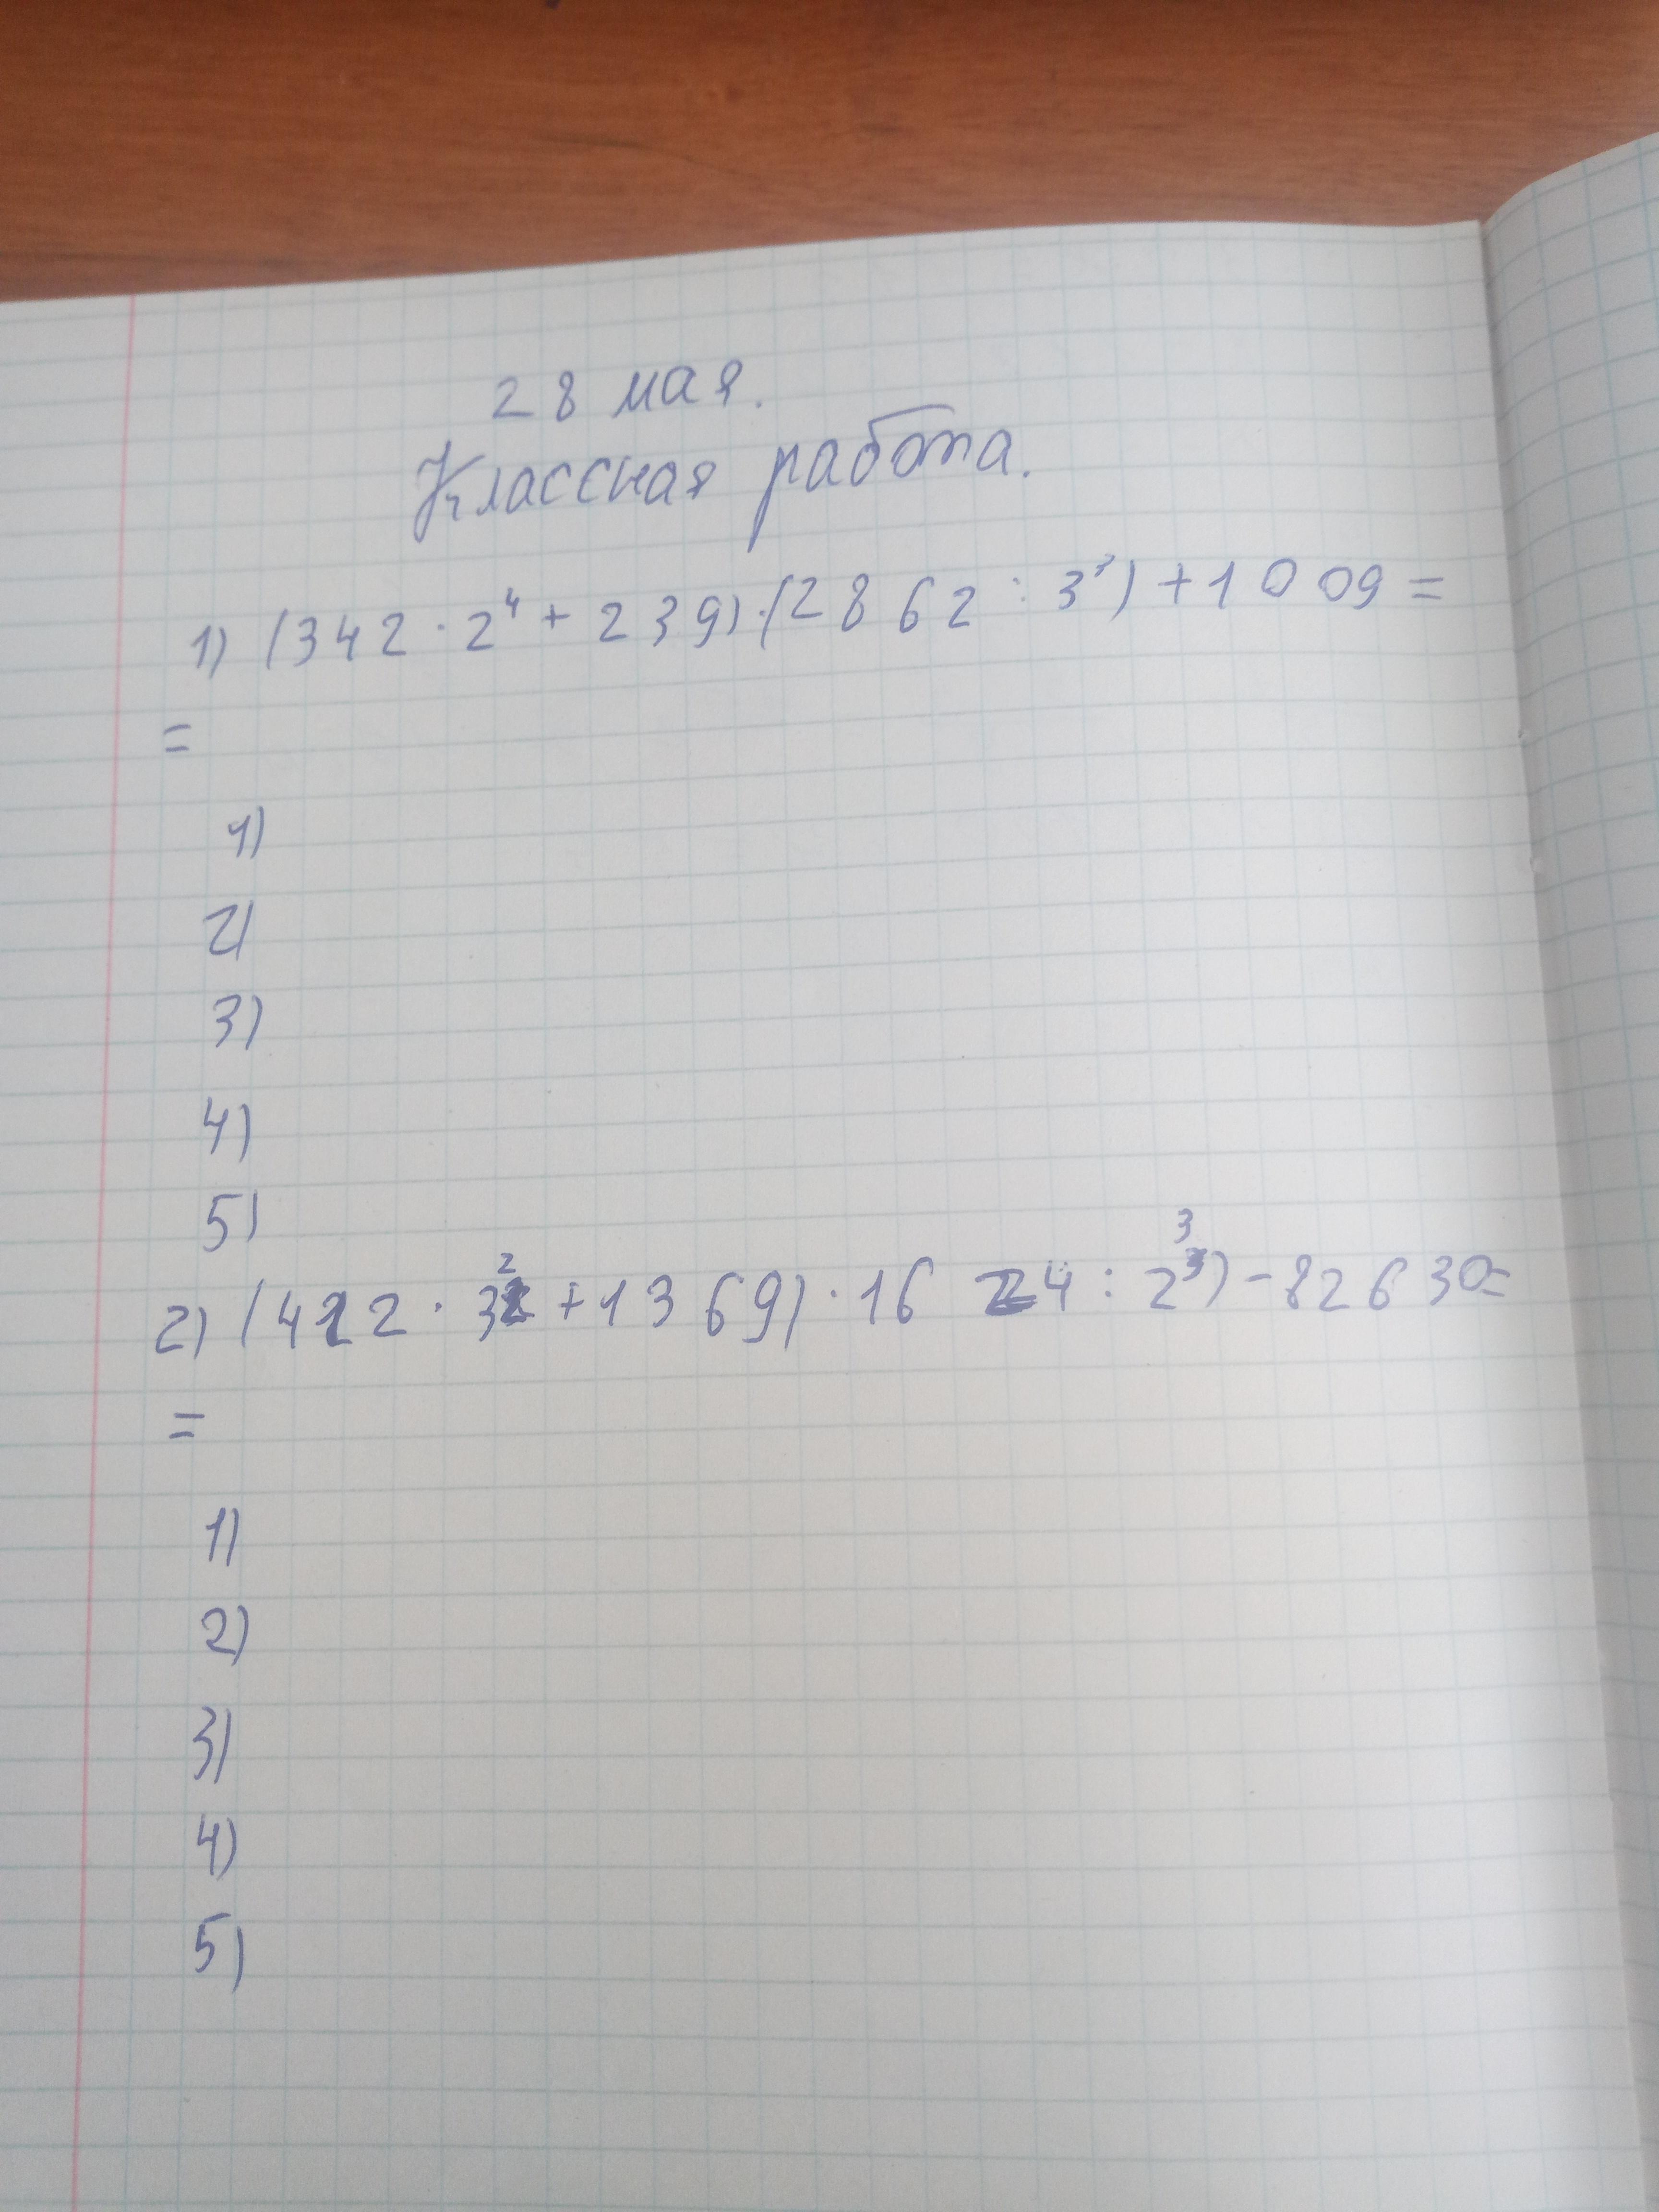 28 мая.
Классная работа.
1) (342 · 2⁴ + 239) · (2862 : 3³) + 1009 =
=
1)
2)
3)
4)
5)
2) (412 · 3² + 1369) · 16 24 : 2³) - 82630=
=
1)
2)
3)
4)
5)